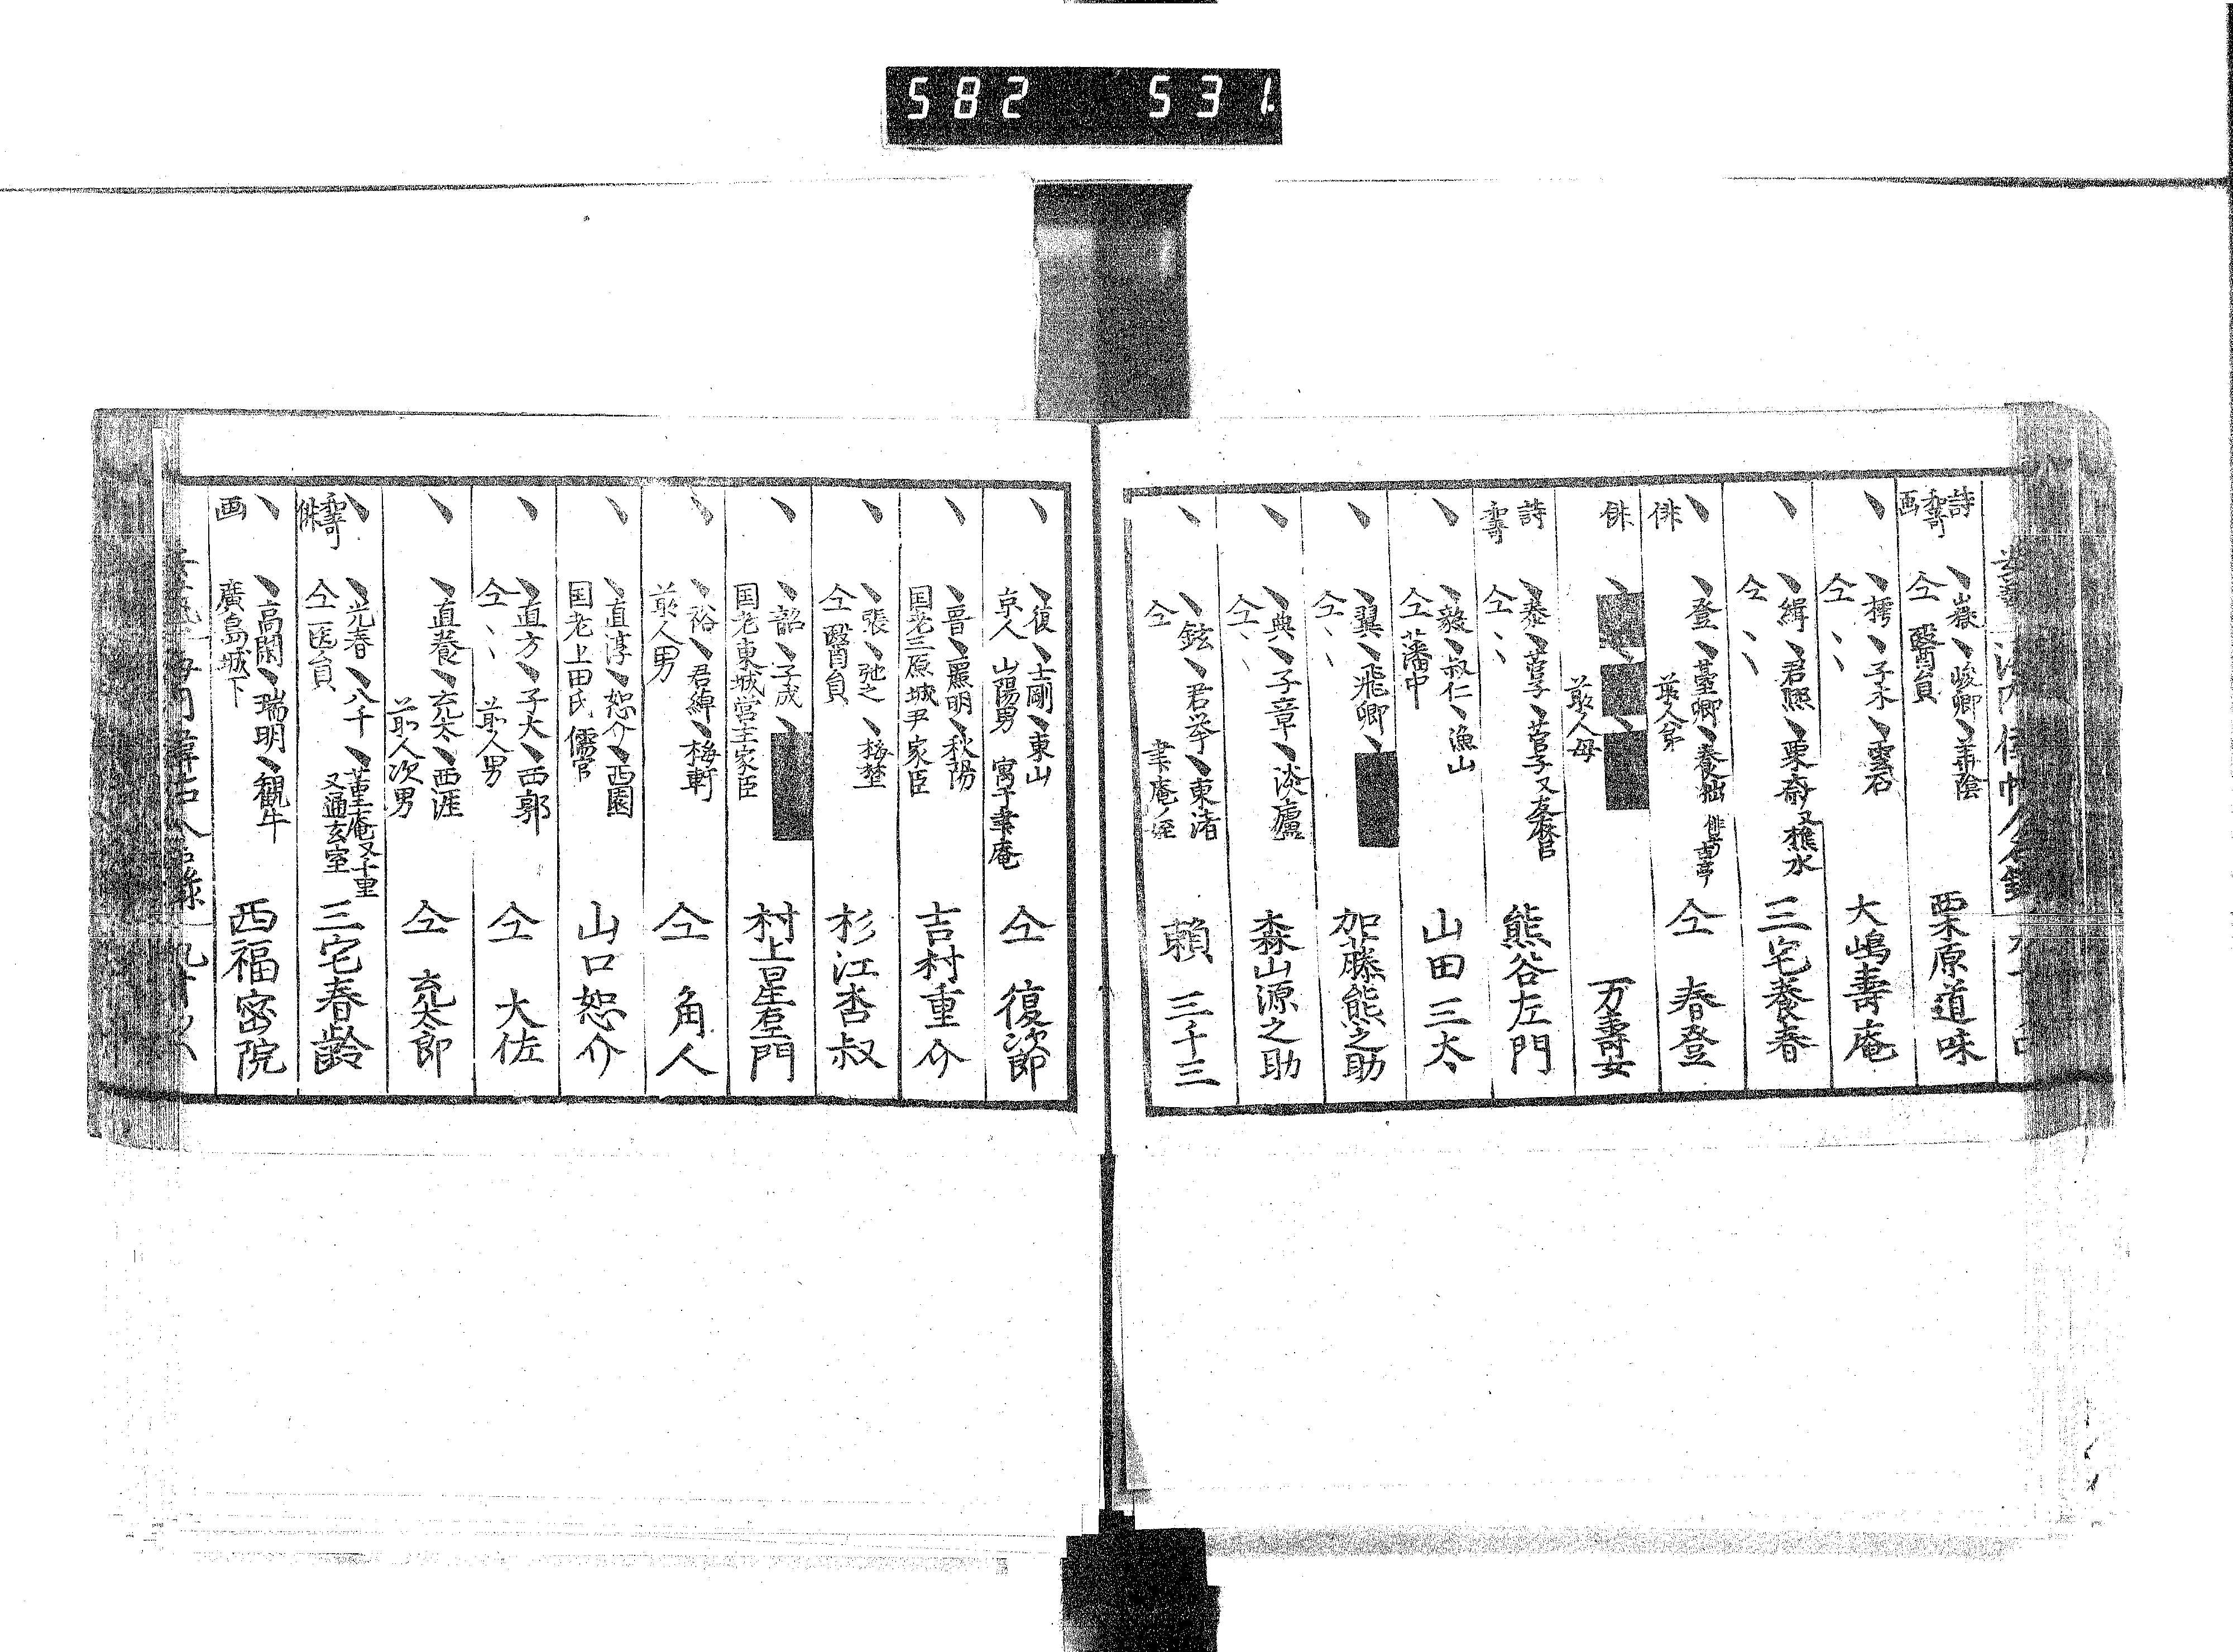 582 531
詩 和哥 画
嶽 峻卿 華陰
仝 醫員
栗原道味
樗 子木 霊石
仝 丶丶
大嶋壽庵
緝 君熙 栗斎 又樵水
仝 丶丶
三宅養春
俳
登 臺卿 養拙
前人弟
仝 春登
俳
前人母
万壽女
詩 和哥
仝 丶丶
熊谷左門
毅 叔仁 漁山
仝 藩中
山田三太
翼 飛卿
仝 丶丶
加藤熊之助
典 子章 淡廬
仝 丶丶
森山源之助
鉉 君挙 東渚
仝 聿庵ノ侄
頼 三千三
復 士剛 東山
京人 山陽男 寓于聿庵
仝 復次郎
晋 麗明 秋陽
国老三原城尹家臣
吉村重介
張 弛之 梅埜
仝 醫員
杉江杏叔
韶 子成
国老東城営主家臣
村上星右門
裕 君綽 梅軒
前人男
仝 角人
直淳 恕介 西園
国老上田氏 儒官
山口恕介
直方 子大 西郭
仝 丶丶 前人男
仝 大佐
直養 充太 西涯
前人次男
仝 充太郎
和哥 俳
光春 八千 董庵 又千里
仝 医員 又通玄室
三宅春齢
画
高閑 瑞明 観牛
廣島城下
西福密院